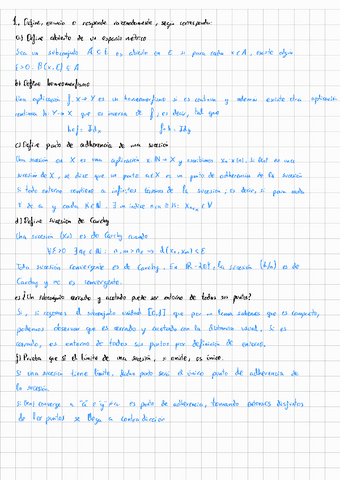 1. Define, enuncia o responde razonadamente, según corresponda:
a) Define abierto de un espacio métrico
Sea un subconjunto A ⊂ E es abierto en E si para cada x ∈ A, existe algún
ε > 0 : B(x, ε) ⊆ A
b) Define homeomorfismo
Una aplicación f: X → Y es un homeomorfismo si es continua y además existe otra aplicación
continua h: Y → X que es inversa de f; es decir, tal que
h∘f = Idx f∘h = Idy
c) Define punto de adherencia de una sucesión
Una sucesión en X es una aplicación x: ℕ → X y escribimos xn = x(n), si (xn) es una
sucesión de X, se dice que un punto a ∈ X es un punto de adherencia de la sucesión
si todo entorno contiene a infinitos términos de la sucesión; es decir, si para cada
V de a y cada k ∈ ℕ ∃ un índice
d) Define sucesión de Cauchy
Una sucesión (xn) es de Cauchy cuando
∀ε > 0 ∃ n₀ ∈ ℕ : n, m > n₀ → d(xn, xm) < ε
Toda sucesión convergente es de Cauchy. En ℝ - {0}, la sucesión (1/n) es de
Cauchy y no es convergente.
e) ¿Un subconjunto cerrado y acotado puede ser entorno de todos sus puntos?
Sí, si cogemos el subconjunto unidad [0,1] que por un lema sabemos que es compacto,
podemos observar que es cerrado y acotado con la distancia usual. Si es
cerrado, es entorno de todos sus puntos por definición de entorno.
f) Prueba que si el límite de una sucesión, si existe, es único.
Si una sucesión tiene límite, dicho punto será el único punto de adherencia de
la sucesión.
Si (xn) converge a "a" e y ≠ a es punto de adherencia, tomando entornos disjuntos
de los puntos se llega a contradicción